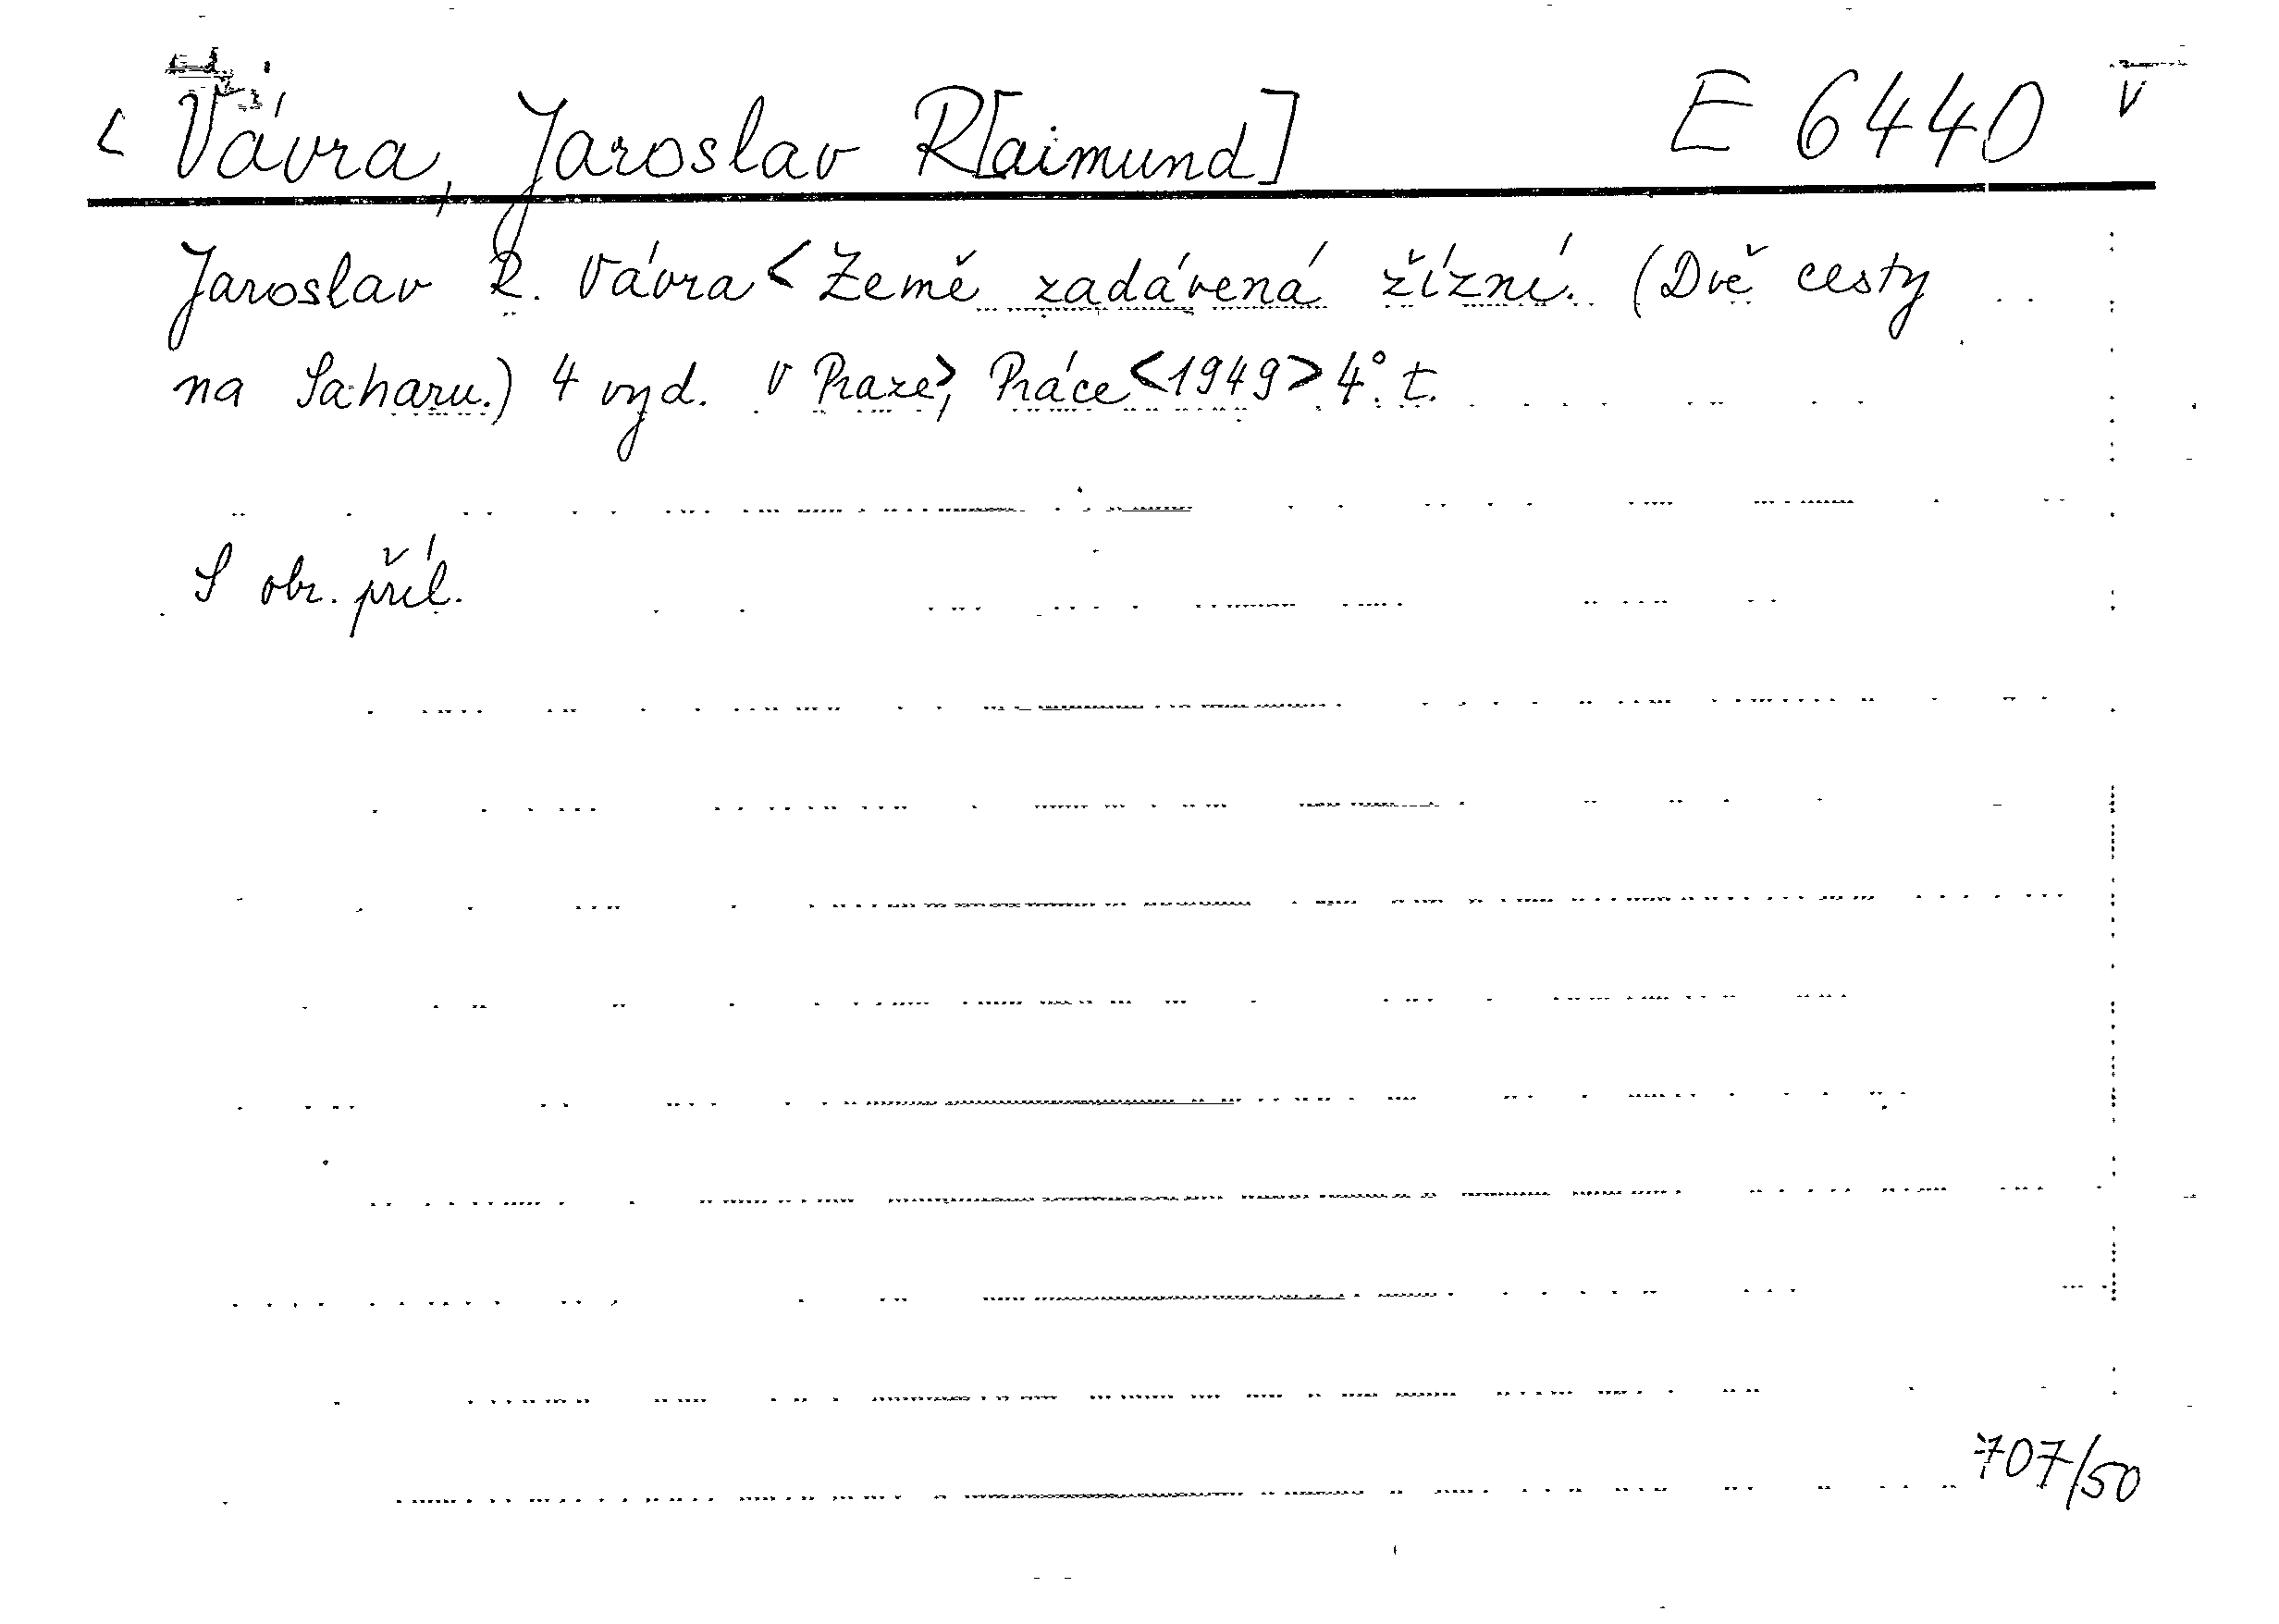 < Vávra, Jaroslav R[aimund] E 6440 v
Jaroslav R. Vávra < Země zadávená žízní. (Dvě cesty
na Saharu.) 4 vyd. V Praze>, Práce <1949> 4° t.
S obr. příl.
707/50